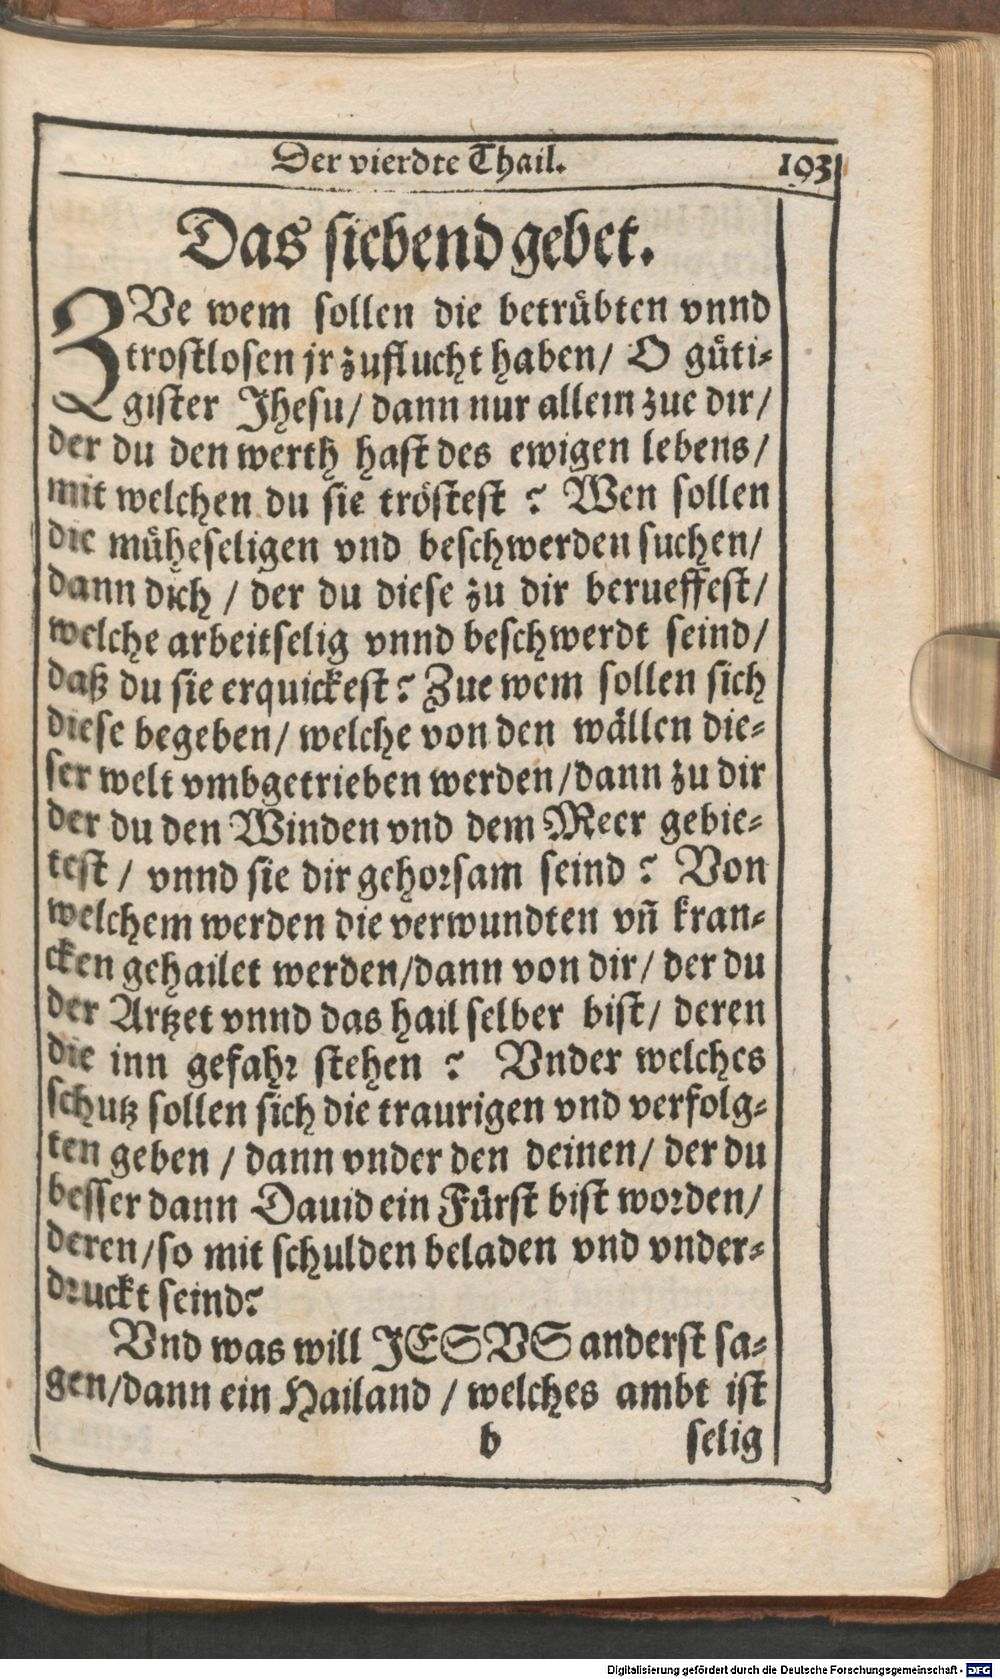 Der vierdte Thail. 193
Das siebend gebet.
ZVe wem sollen die betrübten vnnd
trostlosen jr zuflucht haben/ O güti-
gister Jhesu/ dann nur allein zue dir/
der du den werth hast des ewigen lebens/
mit welchen du sie tröstest? Wen sollen
die müheseligen vnd beschwerden suchen/
dann dich / der du diese zu dir berueffest/
welche arbeitselig vnnd beschwerdt seind/
daß du sie erquickest? Zue wem sollen sich
diese begeben/ welche von den wällen die-
ser welt vmbgetrieben werden/dann zu dir
der du den Winden vnd dem Meer gebie-
test / vnnd sie dir gehorsam seind? Von
welchem werden die verwundten vñ kran-
cken gehailet werden/dann von dir/ der du
der Artzet vnnd das hail selber bist/ deren
die inn gefahr stehen? Vnder welches
schutz sollen sich die traurigen vnd verfolg-
ten geben / dann vnder den deinen/ der du
besser dann Dauid ein Fürst bist worden/
deren/so mit schulden beladen vnd vnder-
druckt seind?
Vnd was will JESVS anderst sa-
gen/dann ein Hailand / welches ambt ist
b selig
Digitalisierung gefördert durch die Deutsche Forschungsgemeinschaft - DFG